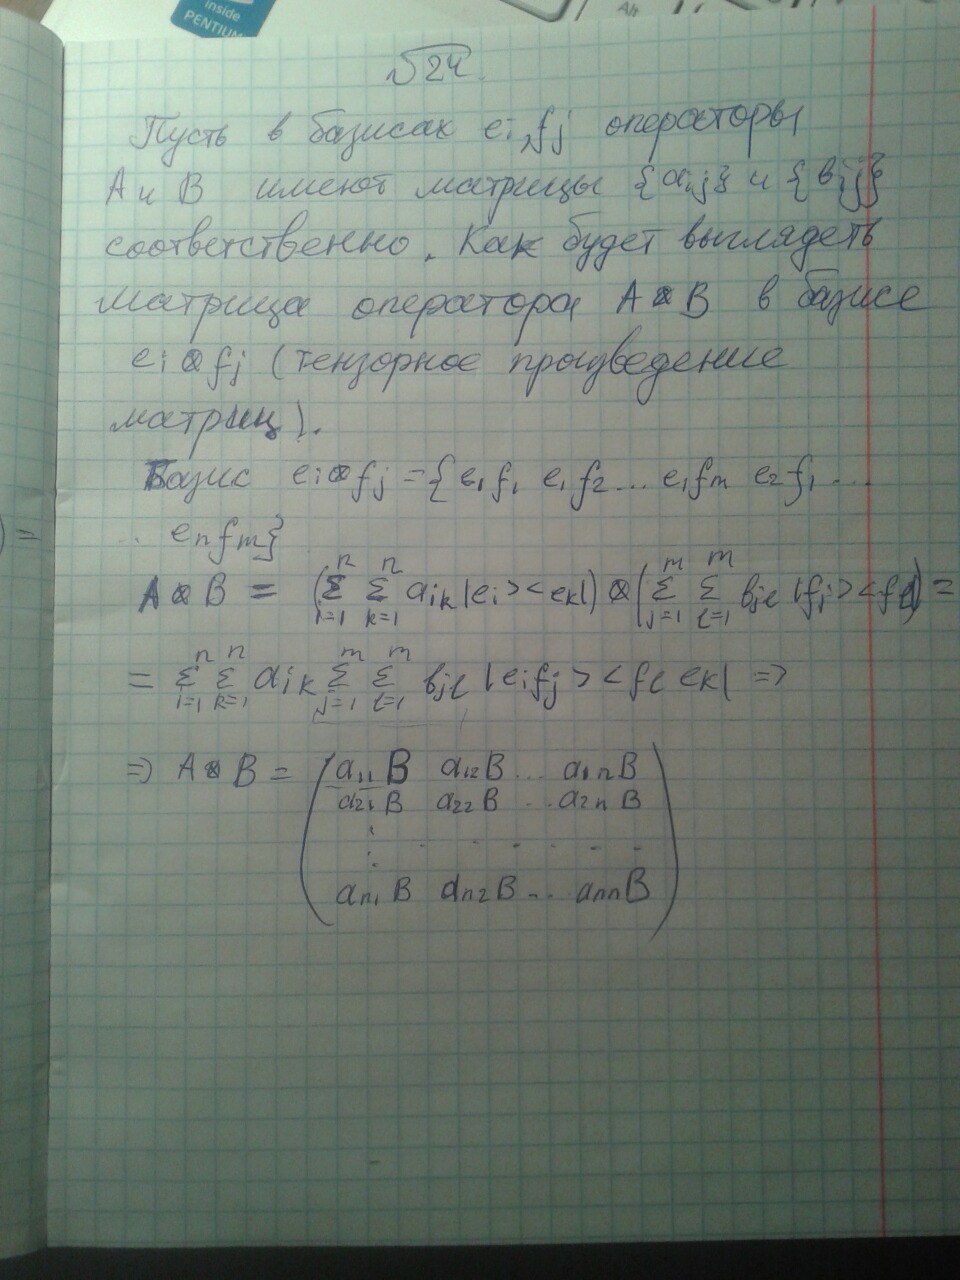 inside
PENTIUM
Alt
№24.
Пусть в базисах ei, fj операторы
A и B имеют матрицы {aij} и {bij}
соответственно. Как будет выглядеть
матрица оператора A⊗B в базисе
ei⊗fj (тензорное произведение
матриц).
Базис ei⊗fj = {e1f1 e1f2 ... e1fm e2f1 ...
... enfm}
A⊗B = (∑_{i=1}^{n} ∑_{k=1}^{n} aik|ei><ek|) ⊗ (∑_{j=1}^{m} ∑_{l=1}^{m} bjl|fj><fl|) =
= ∑_{i=1}^{n} ∑_{k=1}^{n} aik ∑_{j=1}^{m} ∑_{l=1}^{m} bjl |eifj><fl ek| =>
=> A⊗B = ( a11B a12B ... a1nB
a21B a22B ... a2nB
: . . . . . .
an1B an2B ... annB )
) =